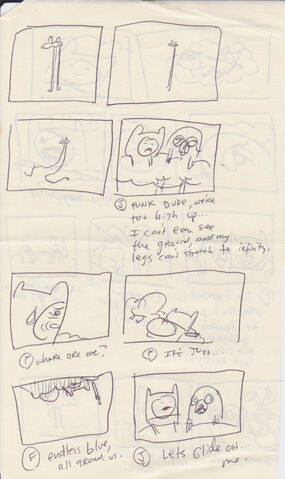 J FUNK DUDE, we're
too high up...
I can't even see
the ground, and my
legs can't stretch to infinity.
F where are we?
F It's JUST...
F endless blue,
all around us.
J Lets Glide on...
me.